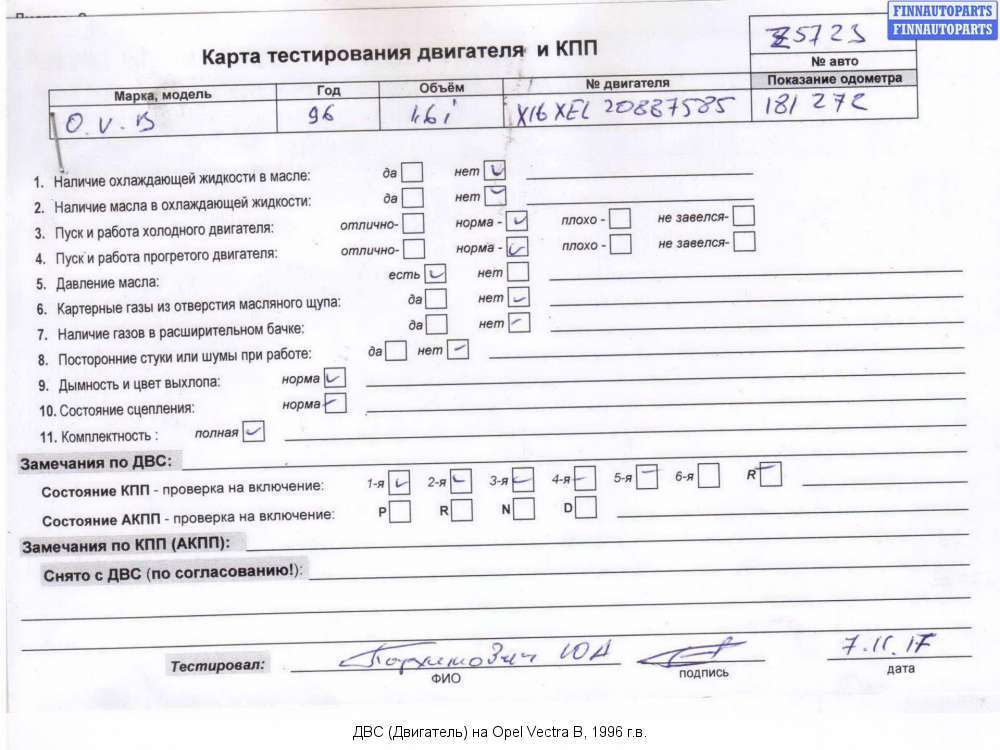 FINNAUTOPARTS
FINNAUTOPARTS
Карта тестирования двигателя и КПП
Z5723
№ авто
Марка, модель Год Объём № двигателя Показание одометра
O.V.B 96 1.6i X16XEL 20887585 181 272
1. Наличие охлаждающей жидкости в масле: да нет
2. Наличие масла в охлаждающей жидкости: да нет
3. Пуск и работа холодного двигателя: отлично- норма - плохо - не завелся-
4. Пуск и работа прогретого двигателя: отлично- норма - плохо - не завелся-
5. Давление масла: есть нет
6. Картерные газы из отверстия масляного щупа: да нет
7. Наличие газов в расширительном бачке: да нет
8. Посторонние стуки или шумы при работе: да нет
9. Дымность и цвет выхлопа: норма
10. Состояние сцепления: норма
11. Комплектность : полная
Замечания по ДВС:
Состояние КПП - проверка на включение: 1-я 2-я 3-я 4-я 5-я 6-я R
Состояние АКПП - проверка на включение: P R N D
Замечания по КПП (АКПП):
Снято с ДВС (по согласованию!):
Тестировал: ЮА 7.11.17
ФИО подпись дата
ДВС (Двигатель) на Opel Vectra B, 1996 г.в.